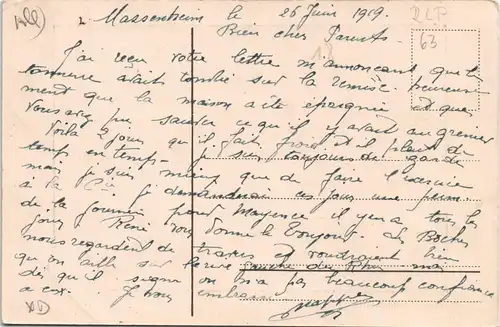 Massenheim le 26 Juin 1919.
Bien chers Parents.
J'ai reçu votre lettre m'annonçant que le
tonnerre avait tombé sur la remise. heureuse-
ment que la maison a été épargnée et que
Vous avez pu sauver ce qu'il y avait au grenier
Voilà jours qu'il fait froid et il pleut de
temps en temps. Je suis toujours de garde
mais je suis mieux que de faire l'exercice
à la Cie je demanderai ces jours une perm.
de la journée pour Mayence il y en a tous les
jours René vous donne le bonjour. Les Boches
nous regardent de travers et voudraient bien
qu'on aille sur la rive du Rhin mais
dès qu'il on n'a pas beaucoup confiance
à eux. Je vous embrasse
RLP
63
18